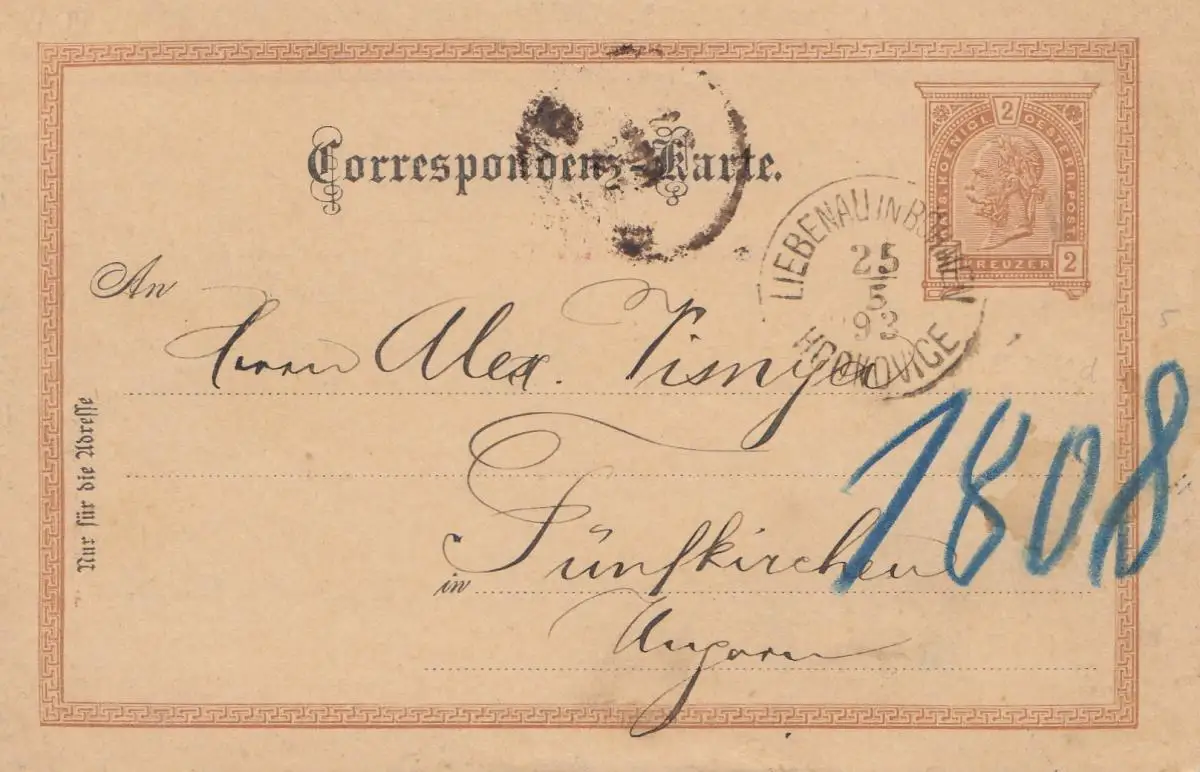 Correspondenz-Karte.
2
KAIS. KOENIGL. OESTERR. POST
2 KREUZER 2
LIEBENAU IN BÖHMEN
25
5
93
HODKOVICE
An
Herrn Alex. Visnya
Nur für die Adresse
in Fünfkirchen
Ungarn
1808